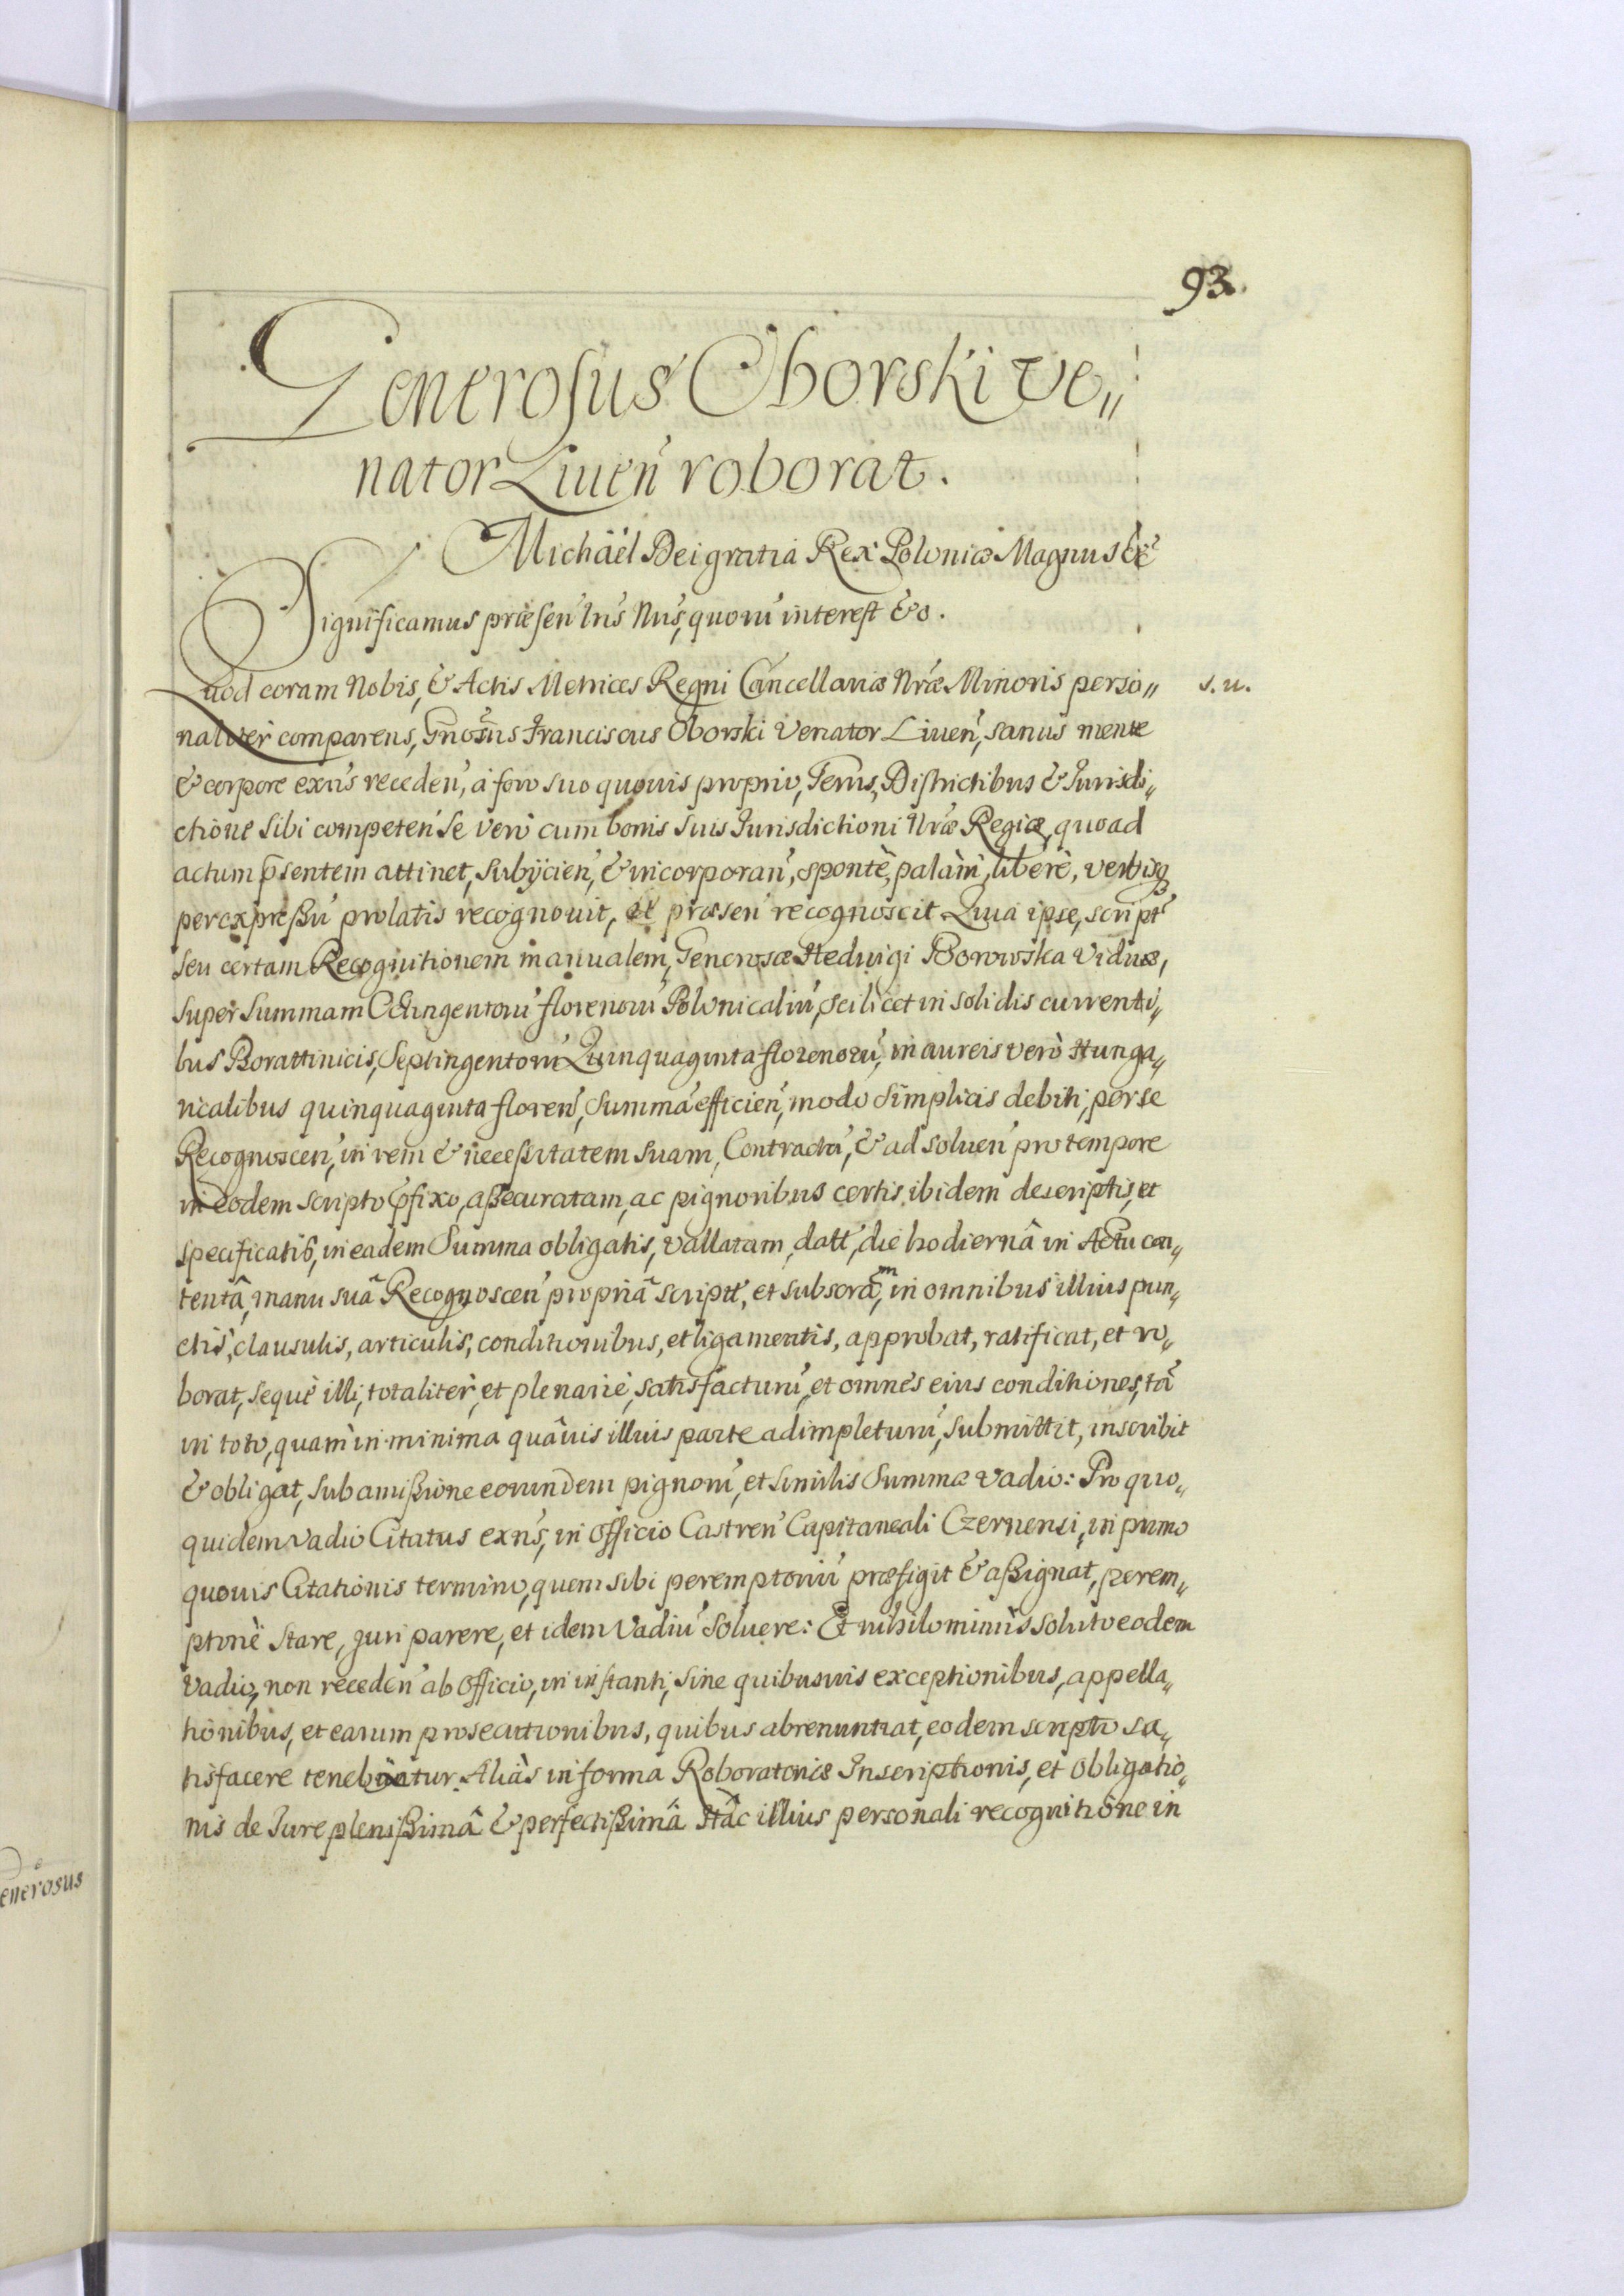 93.
Generosus Oborski ve„
nator Liuen̄ roborat.
Michäel Dei gratia Rex Poloniæ Magnus &c
Significamus præsen̄ lr̄is Nr̄is, quorū interest &c.
Quod coram Nobis, & Actis Metrices Regni Cancellariæ Nr̄æ Minoris perso„
s. u.
naliter comparens, Gn̄osus Franciscus Oborski Venator Liuen̄, sanus mente
& corpore exn̄s receden̄, à foro suo quouis proprio, Terris, Districtibus & Jurisdi„
ctione sibi competen̄ se verò cum bonis suis Jurisdictioni Nr̄æ Regiæ, quoad
actum p̄sentem attinet, subijcien̄, & incorporan̄, spontè, palàm, liberè, verbisq;
per expreßū prolatis recognouit, et præsen̄ recognoscit Quia ipse, script̄
seu certam Recognitionem manualem, Generosæ Heduigi Borowska Viduæ,
super Summam Octingentorū florenorū Polonicaliū, scilicet in solidis currenti„
bus Borattinicis, Septingentorū Quinquaginta florenorū, in aureis verò Hunga„
ricalibus quinquaginta floren̄, Summā efficien̄, modo simplicis debiti, per se
Recognoscen̄, in rem & neceßitatem suam, Contractā, & ad soluen̄ pro tempore
in eodem scripto p̄fixo, aßecuratam, ac pignoribus certis ibidem descriptis, et
specificatis, in eadem Summa obligatis, vallatam, datt̄, die hodiernâ in Actu con„
tentâ, manu suâ Recognoscen̄ propriâ script̄, et subscrām, in omnibus illius pun„
ctis, clausulis, articulis, conditionibus, et ligamentis, approbat, ratificat, et ro„
borat, sequè illi, totaliter, et plenariè, satisfacturū, et omnes eius conditiones, tā
in toto, quam in minima quâuis illius parte adimpleturū, submittit, inscribit
& obligat, sub amißione eorundem pignorū, et similis Summæ vadio: Pro quo„
quidem vadio Citatus exn̄s, in Officio Castren̄ Capitaneali Czernensi, in primo
quouis Citationis termino, quem sibi peremptoriū præfigit & aßignat, perem„
ptoriè stare, juri parere, et idem Vadiū soluere: Et nihilominùs soluto eodem
Vadio, non receden̄ ab Officio, in instanti, sine quibusuis exceptionibus, appella„
tionibus, et earum prosecutionibus, quibus abrenuntiat, eodem scripto sa„
tisfacere tenebitur. Aliàs in forma Roboratoriæ Inscriptionis, et obligatio„
nis de Jure plenißimâ & perfectißimâ Hâc illius personali recognitione in
enerosus